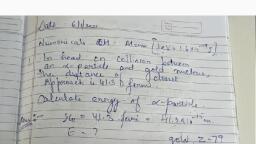 Date 6/1/2021
Numericals CH - Atoms [1eV = 1.6×10⁻¹⁹J]
1. In head on collision between
an α-particle and gold nucleus,
the distance of closest
approach is 41.3 fermi.
Calculate energy of α-particle.
r₀ = 41.3 fermi = 41.3×10⁻¹⁵m
E = ? gold Z=79